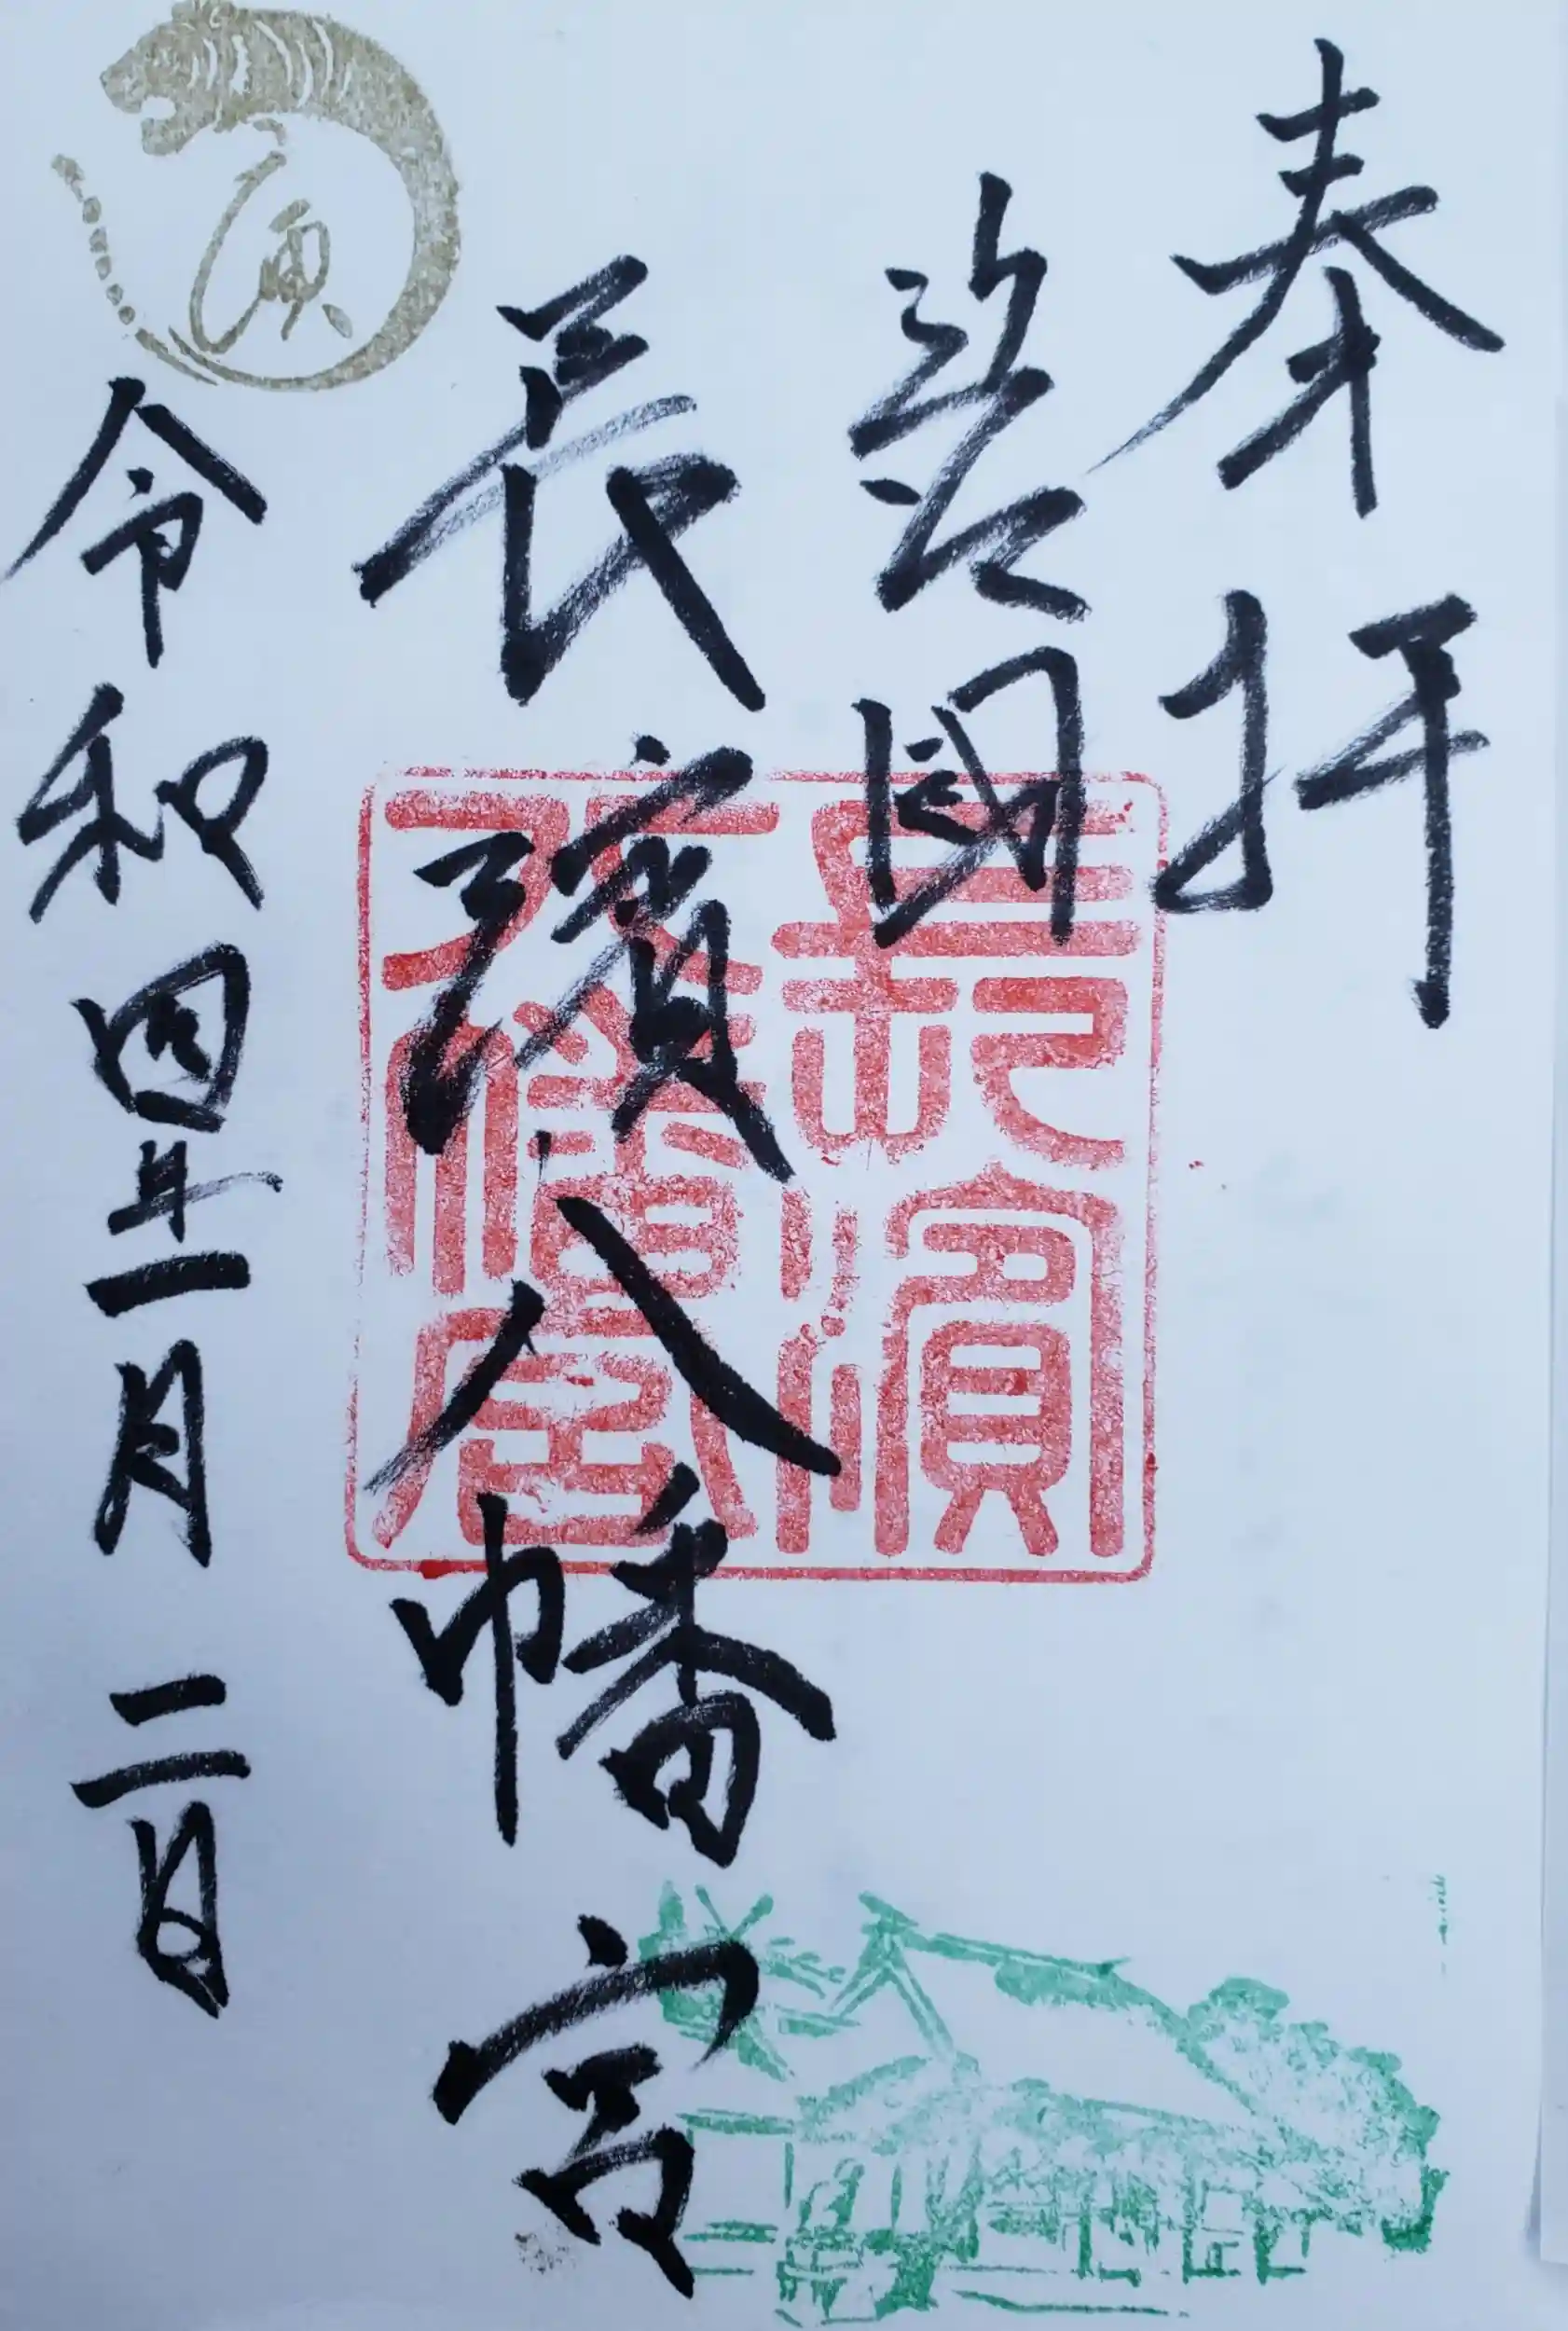 奉拝
國
長濱八幡宮
長濱
八幡宮
令和四年一月二日
寅